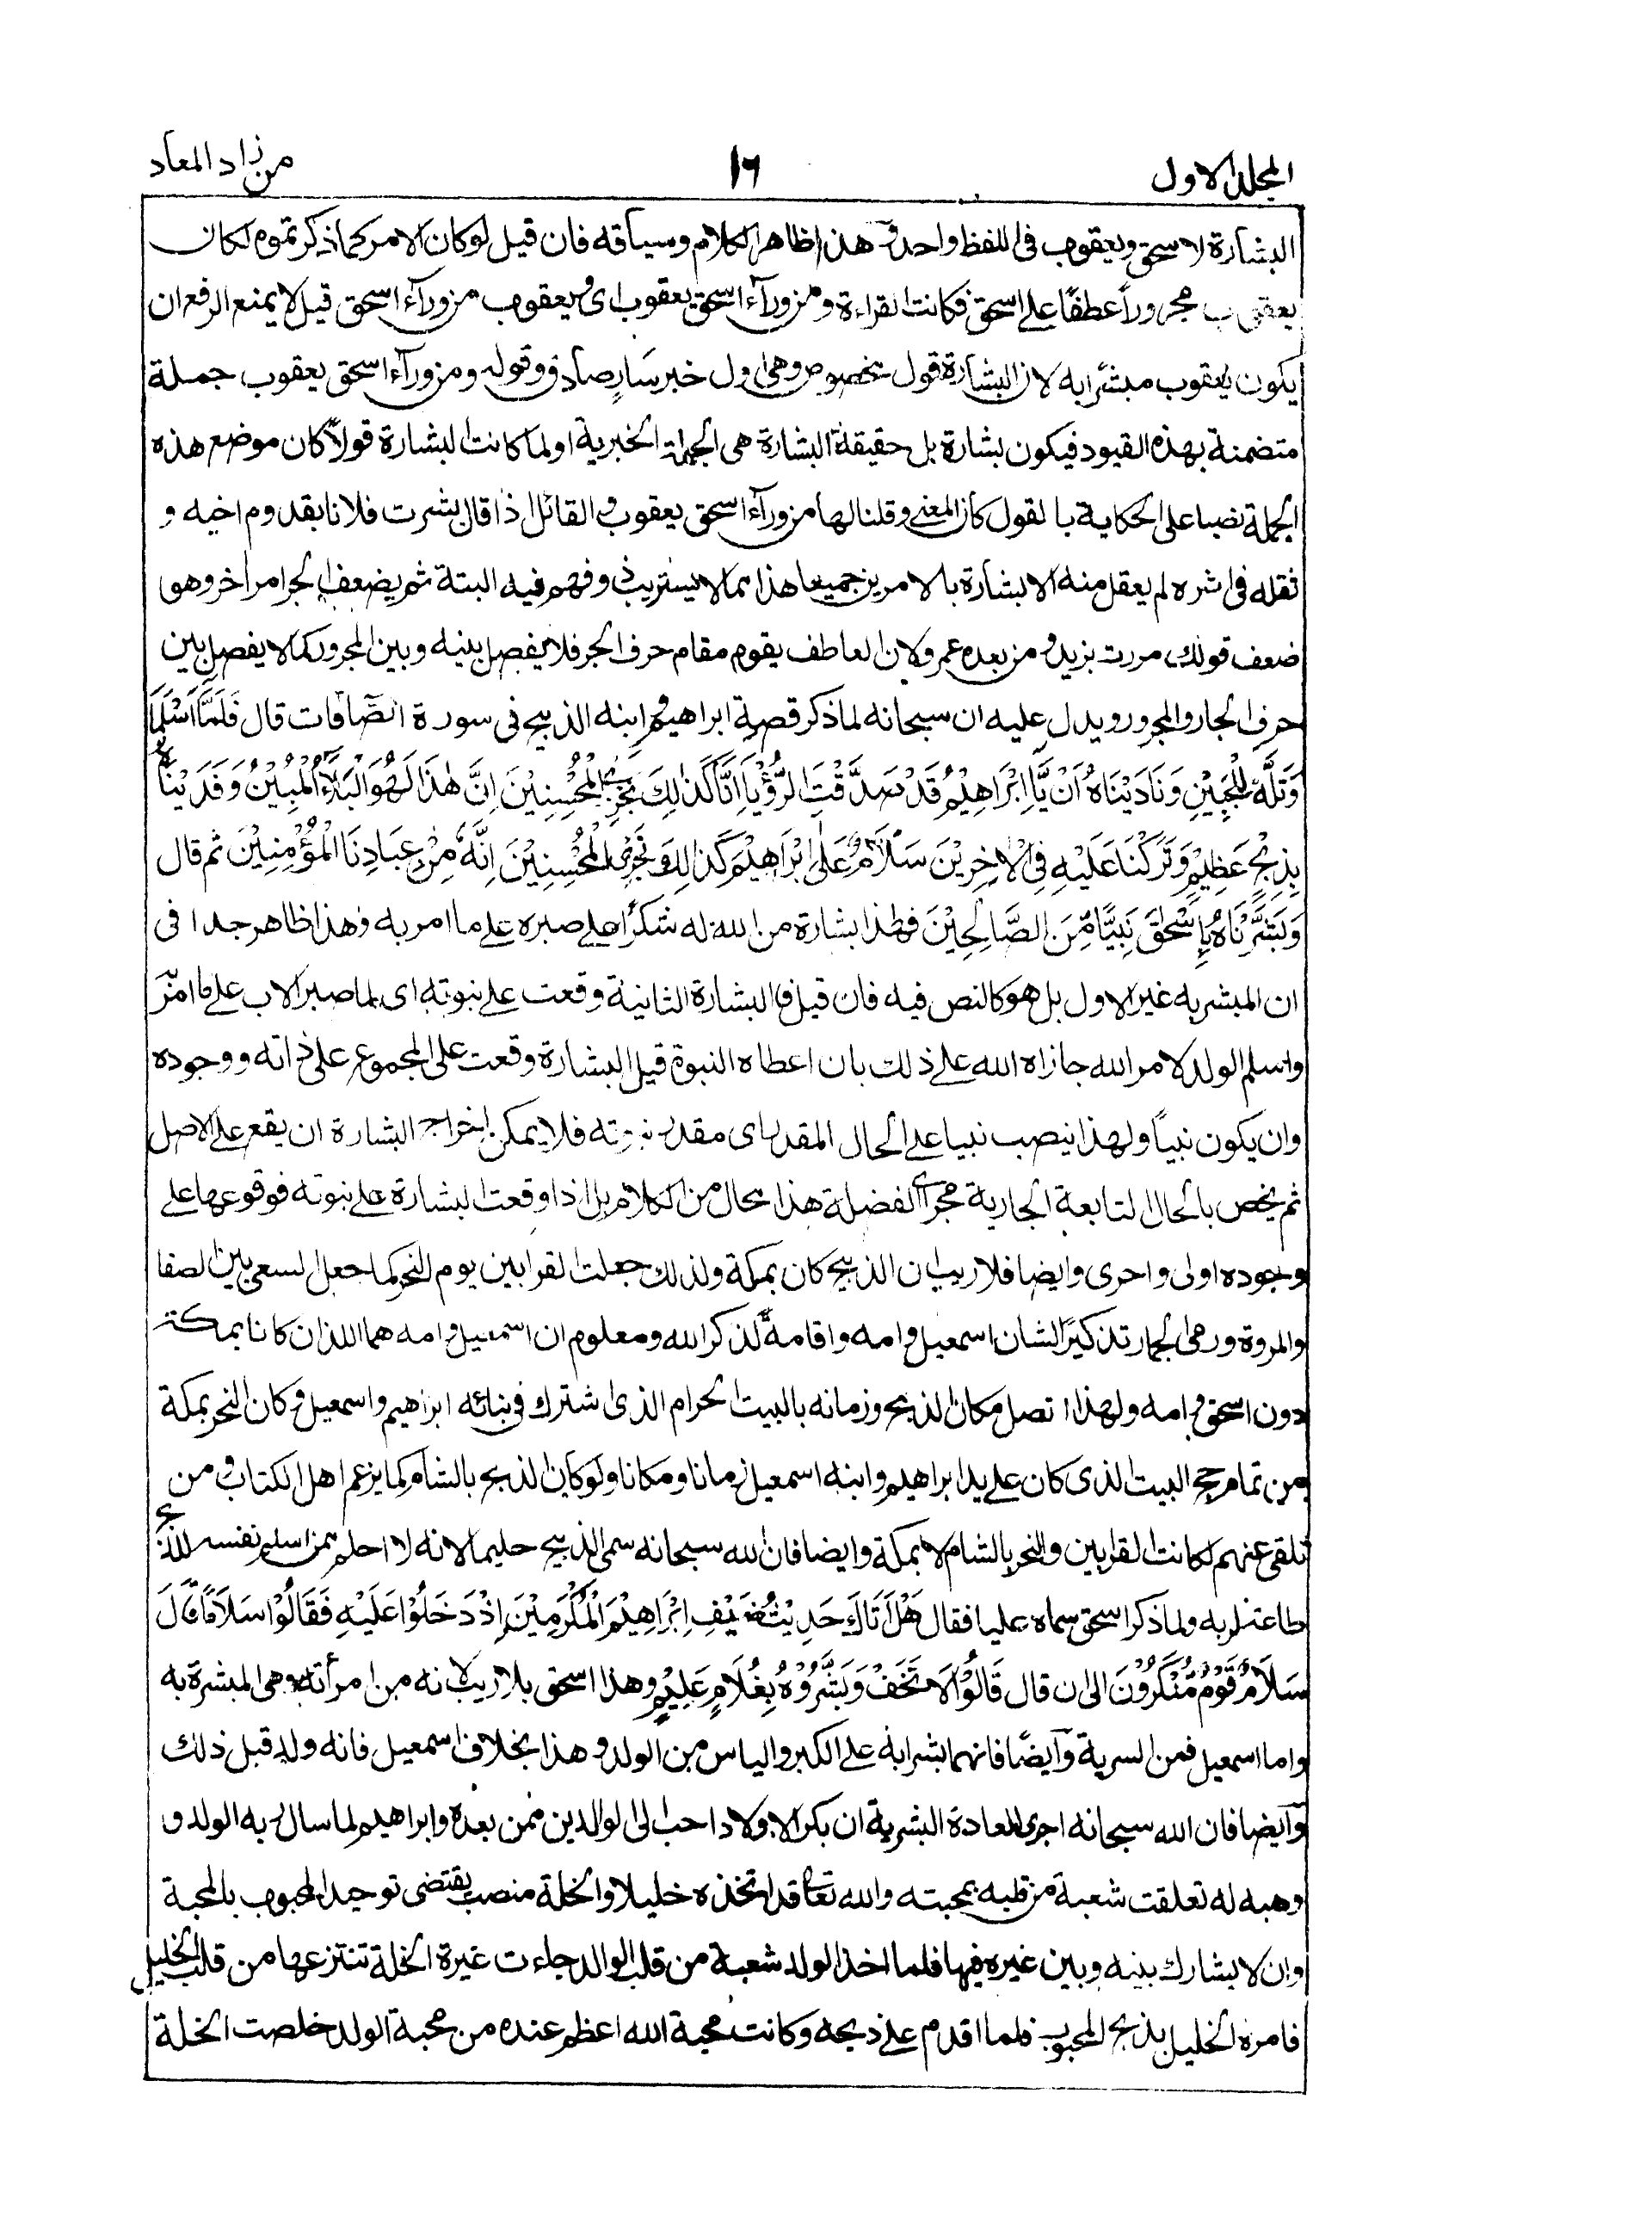 المجلد الاول
١٦
من زاد المعاد
البشارة لاسحق ويعقوب فى اللفظ واحد وهذا ظاهر الكلام وسياقه فان قيل لوكان الامركما ذكرتموه لكان
يعقوب مجروراً عطفًا على اسحق فكانت القراءة ومن ورآء اسحق يعقوب اى ويعقوب من ورآء اسحق قيل لا يمنع الرفع ان
يكون يعقوب مبشرا به لان البشارة قول مخصوص وهى اول خبر سَارٍ صادق وقوله ومن ورآء اسحق يعقوب جملة
متضمنة بهذه القيود فيكون بشارة بل حقيقة البشارة هى الجملة الخبرية اولما كانت البشارة قولاً كان موضع هذه
الجملة نصبا على الحكاية بالقول كان المعنى وقلنا لها من ورآء اسحق يعقوب والقائل اذا قال بشرت فلانا بقدوم اخيه و
ثقله فى اثره لم يعقل منه الا بشارة بالامرين جميعا هذا مما لا يستريب ذو فهم فيه البتة ثم يضعف الجر امر اخر وهو
ضعف قولك مررت بزيد ومن بعده عمرو ولان العاطف يقوم مقام حرف الجر فلا يفصل بينه وبين المجرور كما لا يفصل بين
حرف الجار والمجرور ويدل عليه ان سبحانه لما ذكر قصة ابراهيم وابنه الذبيح فى سورة الصّآفات قال فَلَمَّا اَسْلَمَا
وَتَلَّهٗ لِلْجَبِيْنِ وَنَادَيْنَاهُ اَنْ يَّا اِبْرَاهِيْمُ قَدْ صَدَّقْتَ الرُّؤْيَا اِنَّا كَذٰلِكَ نَجْزِى الْمُحْسِنِيْنَ اِنَّ هٰذَا لَهُوَ الْبَلَآءُ الْمُبِيْنُ وَفَدَيْنَاهُ
بِذِبْحٍ عَظِيْمٍ وَتَرَكْنَا عَلَيْهِ فِى الْاٰخِرِيْنَ سَلَامٌ عَلٰى اِبْرَاهِيْمَ كَذٰلِكَ نَجْزِى الْمُحْسِنِيْنَ اِنَّهٗ مِنْ عِبَادِنَا الْمُؤْمِنِيْنَ ثم قال
وَبَشَّرْنَاهُ بِاِسْحٰقَ نَبِيًّا مِّنَ الصَّالِحِيْنَ فهذا بشارة من الله له شكرًا على صبره على ما امر به وهذا ظاهر جدا فى
ان المبشر به غير الاول بل هو كالنص فيه فان قيل فالبشارة الثانية وقعت على نبوته اى لما صبر الاب على ما امر به
واسلم الولد لامر الله جازاه الله على ذلك بان اعطاه النبوة قيل البشارة وقعت على المجموع على ذاته ووجوده
وان يكون نبياً ولهذا ينصب نبيا على الحال المقدر اى مقدر نبوته فلا يمكن اخراج البشارة ان يقع على الاصل
ثم يخص بالحال التابعة الجارية مجرى الفضلة هذا محال من الكلام بل اذا وقعت البشارة على نبوته فوقوعها على
وجوده اولى واحرى وايضا فلا ريب ان الذبيح كان بمكة ولذلك جعلت القرابين يوم النحر كما جعل السعى بين الصفا
والمروة ورمى الجمار تذكيرًا لشان اسمعيل وامه واقامةً لذكر الله ومعلوم ان اسمعيل وامه هما اللذان كانا بمكة
دون اسحق وامه ولهذا اتصل مكان الذبح وزمانه بالبيت الحرام الذى اشترك فى بنائه ابراهيم واسمعيل وكان النحر بمكة
من تمام حج البيت الذى كان على يد ابراهيم وابنه اسمعيل زمانا ومكانا ولو كان الذبح بالشام كما يزعم اهل الكتاب ومن
تلقى عنهم لكانت القرابين والنحر بالشام لا بمكة وايضا فان الله سبحانه سمى الذبيح حليما لانه لا احلم ممن اسلم نفسه للذبح
طاعة لربه ولما ذكر اسحق سماه عليما فقال هَلْ اَتَاكَ حَدِيْثُ ضَيْفِ اِبْرَاهِيْمَ الْمُكْرَمِيْنَ اِذْ دَخَلُوْا عَلَيْهِ فَقَالُوْا سَلَامًا قَالَ
سَلَامٌ قَوْمٌ مُّنْكَرُوْنَ الى ان قال قَالُوْا لَا تَخَفْ وَبَشَّرُوْهُ بِغُلَامٍ عَلِيْمٍ وهذا اسحق بلا ريب لانه من امرأته وهى المبشرة به
واما اسمعيل فمن السرية وآيضًا فانهما بشرا به على الكبر والياس من الولد وهذا بخلاف اسمعيل فانه ولد قبل ذلك
وآيضا فان الله سبحانه اجرى العادة البشرية ان بكر الاولاد احب الى الوالدين ممن بعده وابراهيم لما سال ربه الولد و
وهبه له تعلقت شعبة من قلبه بمحبته والله تعالى قد اتخذه خليلا والخلة منصب يقتضى توحيد المحبوب بالمحبة
وان لا يشارك بينه وبين غيره فيها فلما اخذ الولد شعبة من قلب الوالد جاءت غيرة الخلة تنتزعها من قلب الخليل
فامره الخليل بذبح المحبوب فلما اقدم على ذبحه وكانت محبة الله اعظم عنده من محبة الولد خلصت الخلة